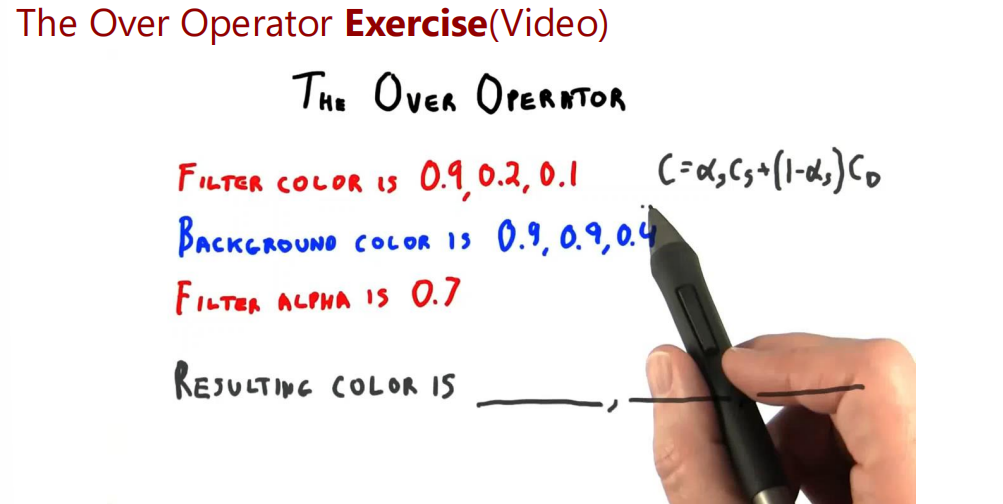 The Over Operator Exercise(Video)
THE OVER OPERATOR
FILTER COLOR IS 0.9, 0.2, 0.1
C=αₛCₛ+(1-αₛ)C_D
BACKGROUND COLOR IS 0.9, 0.9, 0.4
FILTER ALPHA IS 0.7
RESULTING COLOR IS ____, ____, ____